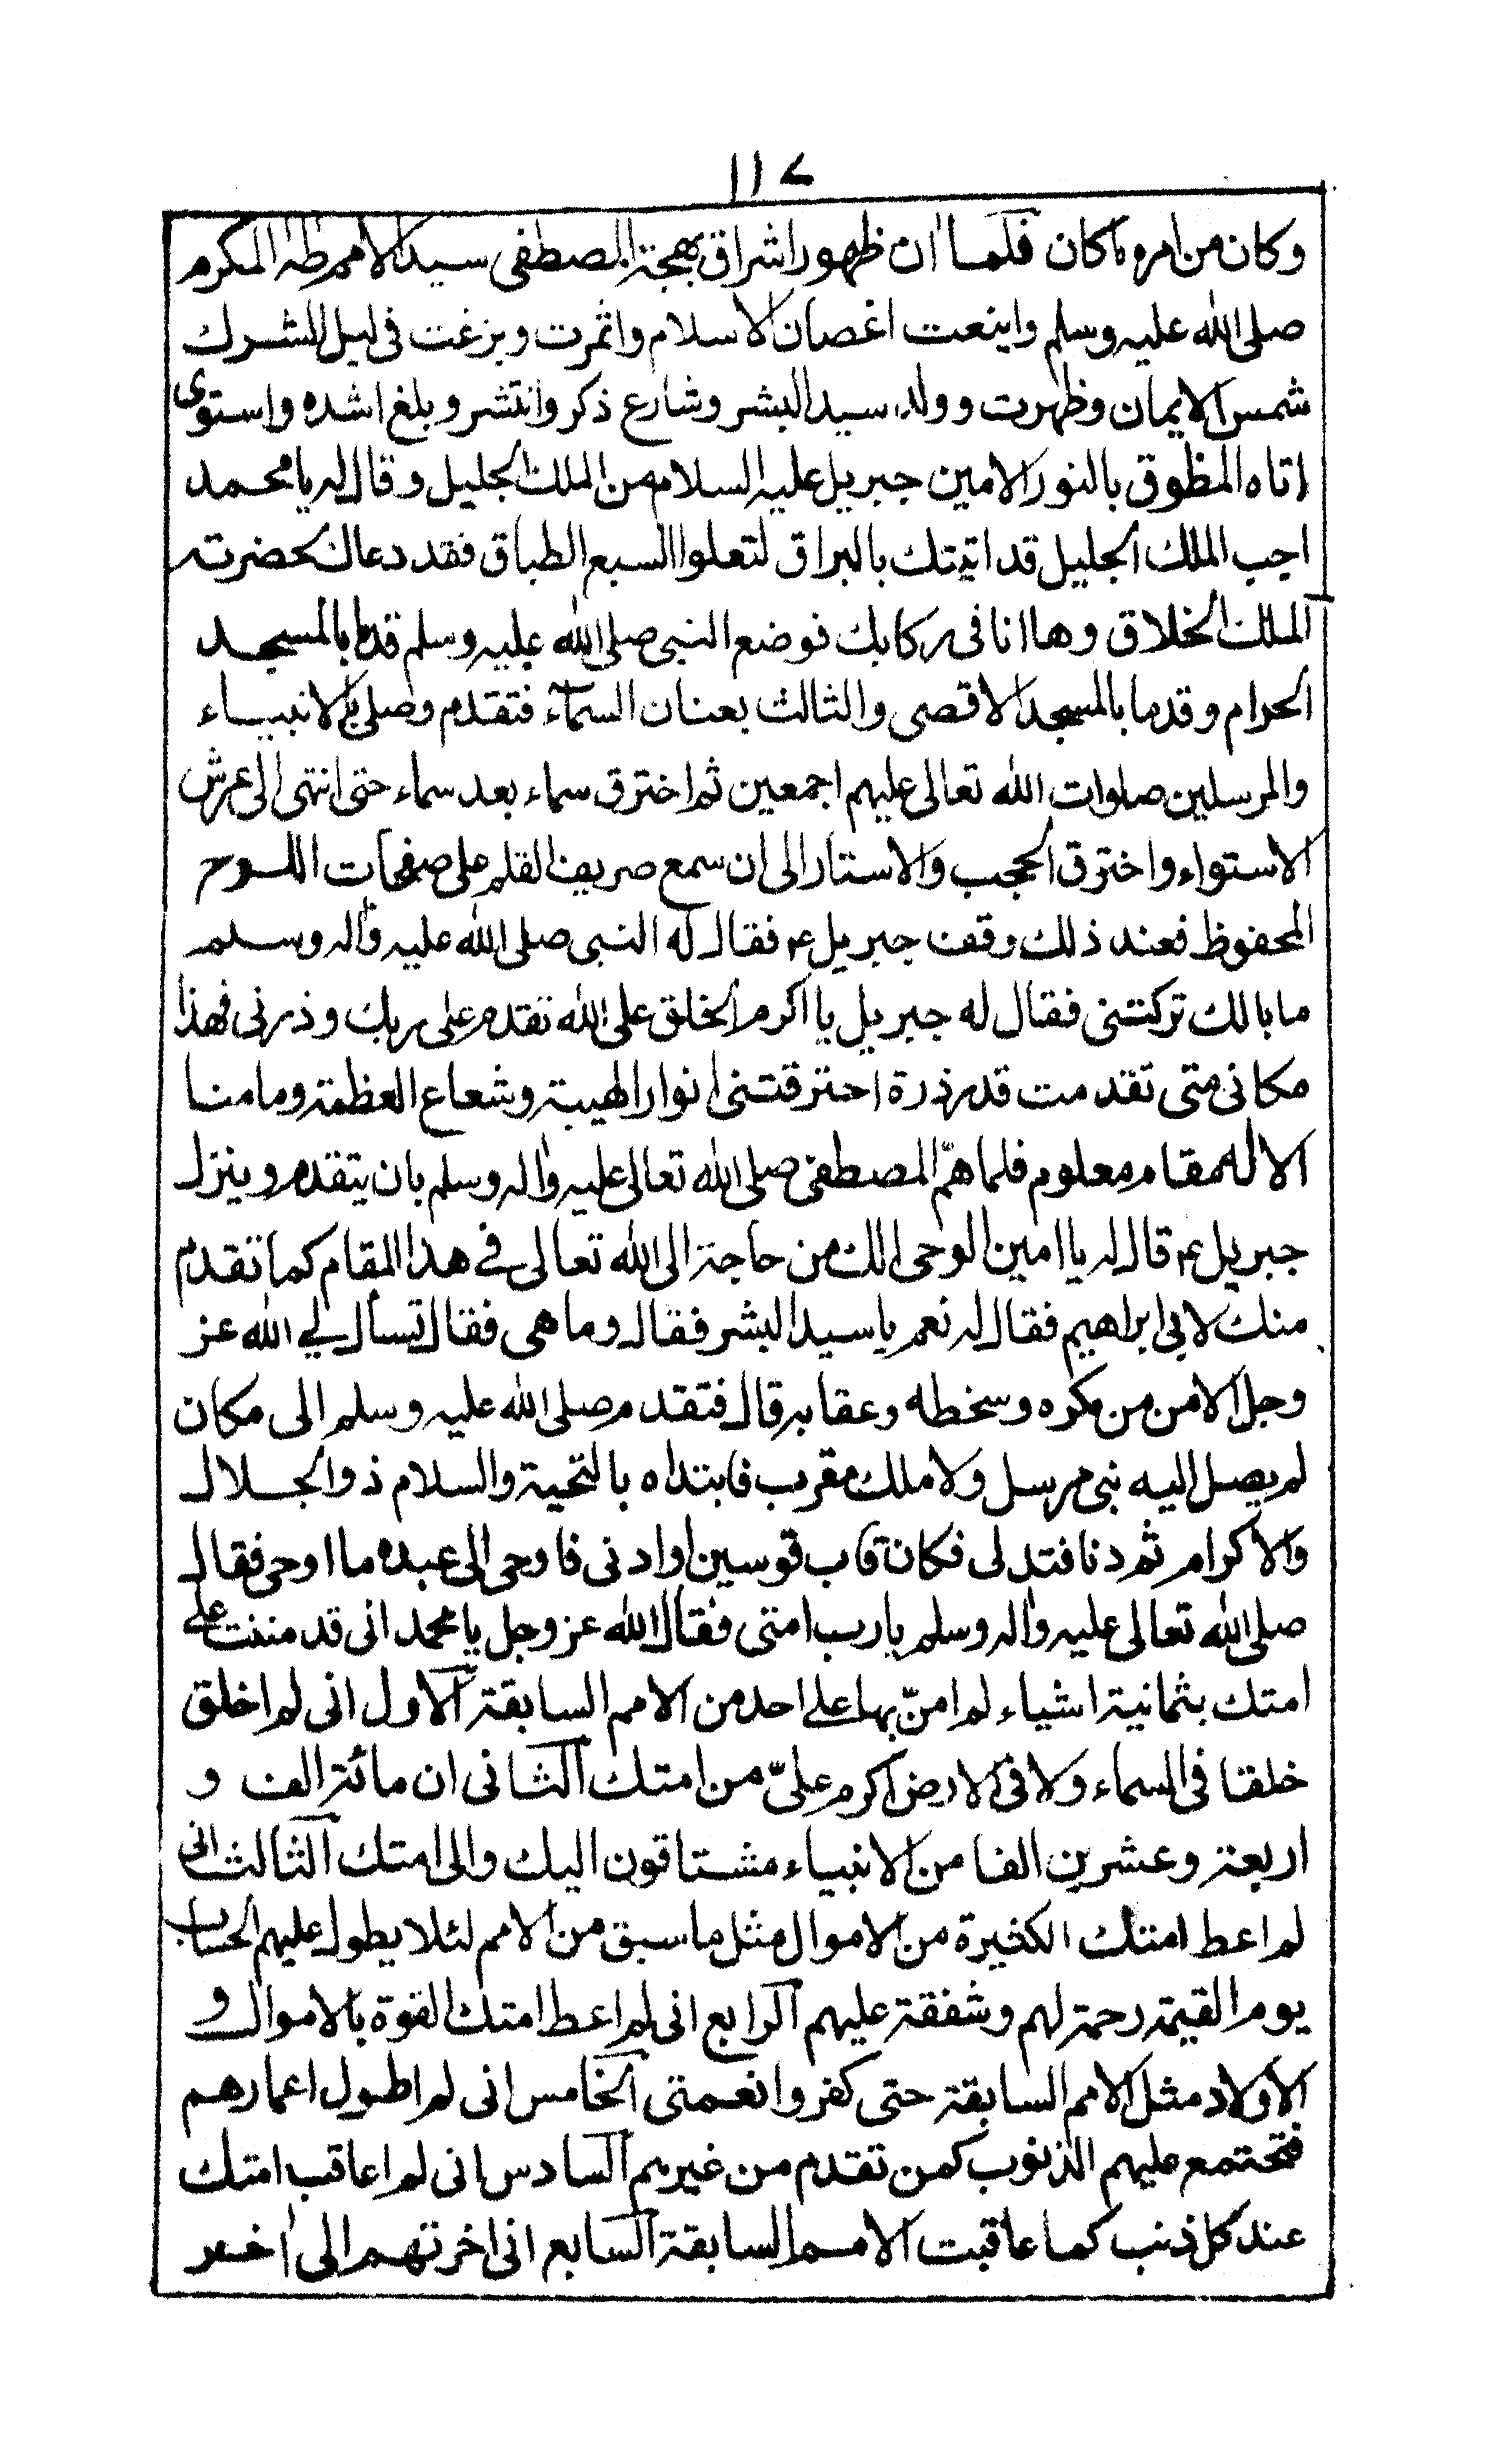 ١١٧
وكان من امره ماكان فلما ان ظهور اشراق بهجة المصطفى سيد الامم طه المكرم
صلى الله عليه وسلم واينعت اغصان الاسلام واثمرت وبزغت فى ليل الشرك
شمس الايمان وظهرت وولد سيد البشر وشارع ذكر وانتشر وبلغ اشده واستوى
اتاه المطوق بالنور الامين جبريل عليه السلام من الملك الجليل وقال له يا محمد
اجب الملك الجليل قد اتيتك بالبراق لتعلوا السبع الطباق فقد دعاك لحضرته
الملك الخلاق وها انا فى ركابك فوضع النبى صلى الله عليه وسلم قدما بالمسجد
الحرام وقدما بالمسجد الاقصى والثالث بعنان السمآء فتقدم وصلى بالانبياء
والمرسلين صلوات الله تعالى عليهم اجمعين ثم اخترق سماء بعد سماء حتى انتهى الى عرش
الاستواء واخترق الحجب والاستار الى ان سمع صريف القلم على صفحات اللوح
المحفوظ فعند ذلك وقف جبريل ع فقال له النبى صلى الله عليه وآله وسلم
ما بالك تركتنى فقال له جبريل يا اكرم الخلق على الله تقدم على ربك وذرنى فهذا
مكانى متى تقدمت قدم ذرة احترقتنى انوار الهيبة وشعاع العظمة وما منا
الا له مقام معلوم فلما همّ المصطفى صلى الله تعالى عليه وآله وسلم بان يتقدم وينزل
جبريل ع قال له يا امين الوحى الك من حاجة الى الله تعالى فى هذا المقام كما تقدم
منك لابى ابراهيم فقال له نعم يا سيد البشر فقال وما هى فقال تسأل لى الله عز
وجل الامن من مكره وسخطه وعقابه قال فتقدم صلى الله عليه وسلم الى مكان
لم يصل اليه نبى مرسل ولا ملك مقرب فابتداه بالتحية والسلام ذو الجلال
والاكرام ثم دنا فتدلى فكان قاب قوسين او ادنى فاوحى الى عبده ما اوحى فقال
صلى الله تعالى عليه وآله وسلم يا رب امتى فقال الله عز وجل يا محمد انى قد مننت على
امتك بثمانية اشياء لم امنّ بها على احد من الامم السابقة الاول انى لم اخلق
خلقا فى السماء ولا فى الارض اكرم علىّ من امتك الثانى ان مائة الف و
اربعة وعشرين الفا من الانبياء مشتاقون اليك والى امتك الثالث انى
لم اعط امتك الكثيرة من الاموال مثل ما سبق من الامم لئلا يطول عليهم الحساب
يوم القيمة رحمة لهم وشفقة عليهم الرابع انى لم اعط امتك القوة بالاموال و
الاولاد مثل الامم السابقة حتى كفروا نعمتى الخامس انى لم اطول اعمارهم
فتجتمع عليهم الذنوب كمن تقدم من غيرهم السادس انى لم اعاقب امتك
عند كل ذنب كما عاقبت الامم السابقة السابع انى اخرتهم الى اخر